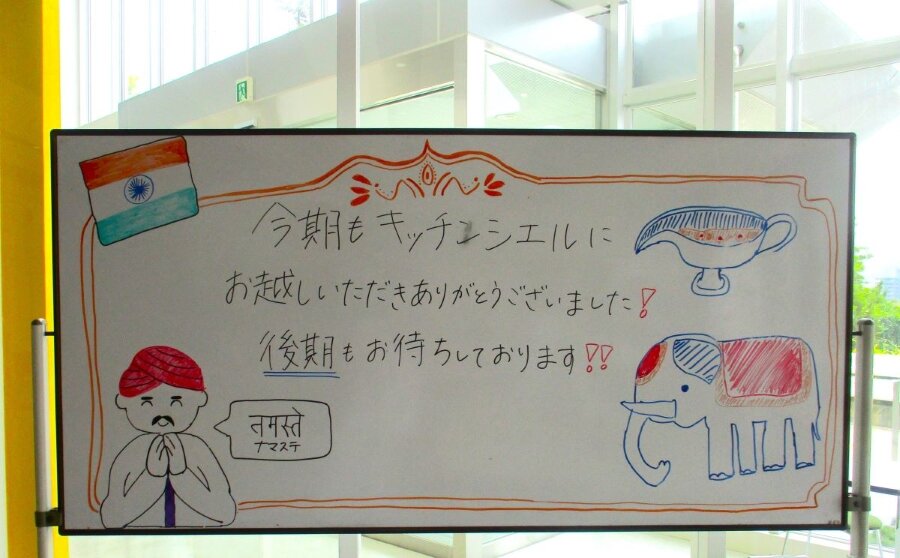 今期もキッチンシエルに
お越しいただきありがとうございました!
後期もお待ちしております!!
नमस्ते
ナマステ